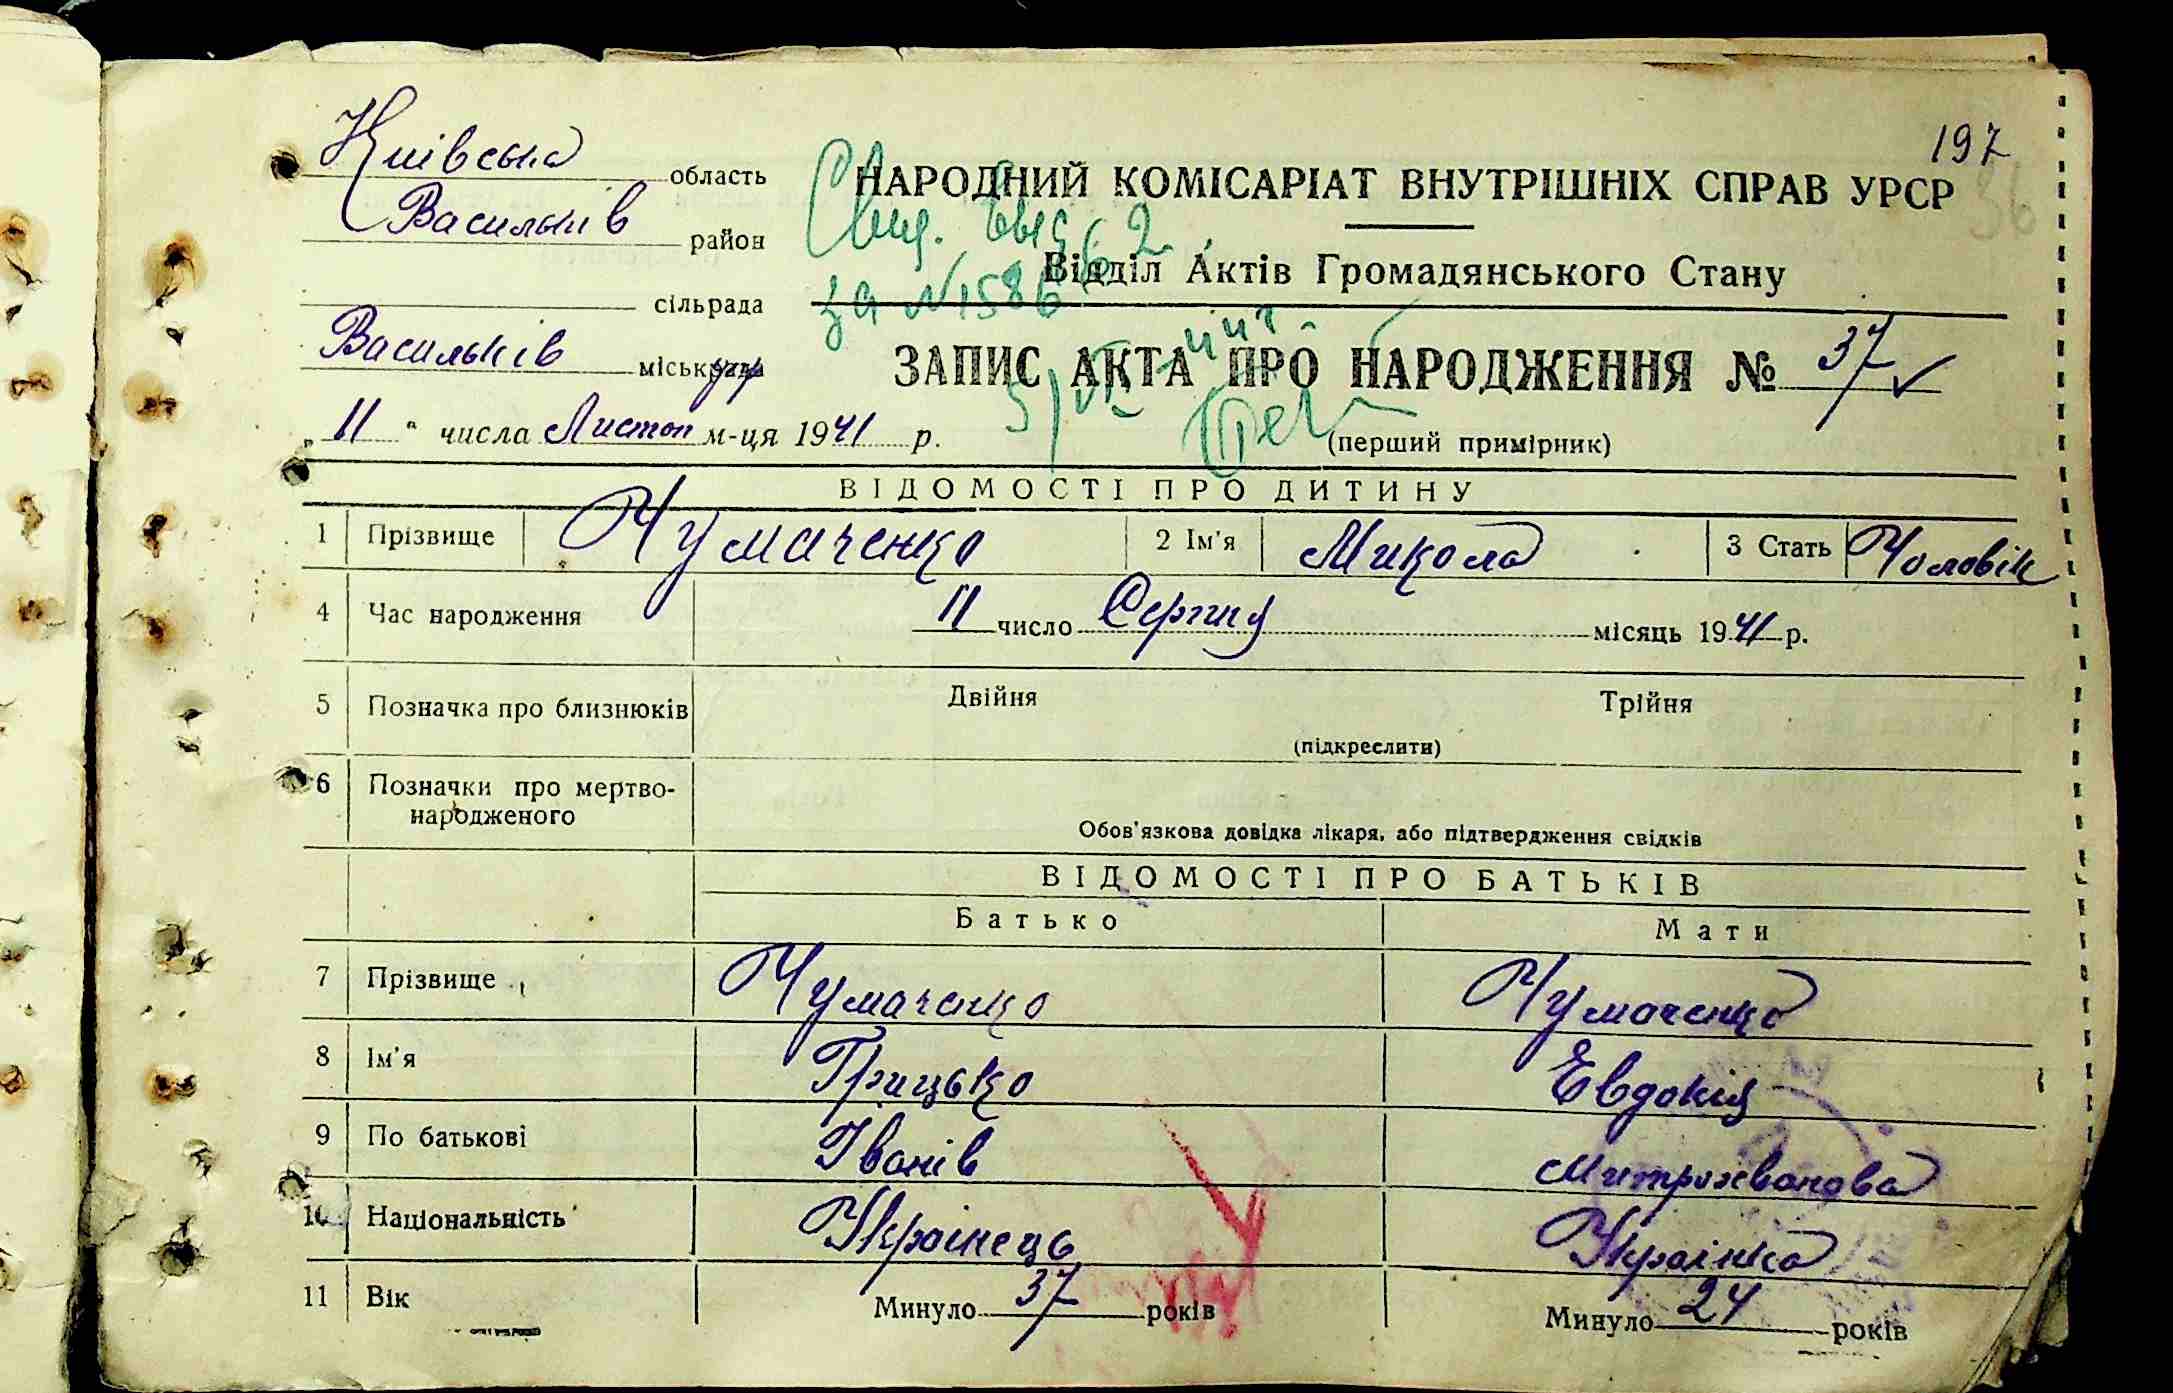 197
36
Київська область
Васильків район
сільрада
Васильків міськрада
НАРОДНИЙ КОМІСАРІАТ ВНУТРІШНІХ СПРАВ УРСР
Відділ Актів Громадянського Стану
за №1586
ЗАПИС АКТА ПРО НАРОДЖЕННЯ № 37
„11“ числа Листоп м-ця 1941 р.
(перший примірник)
ВІДОМОСТІ ПРО ДИТИНУ
1 Прізвище Чумаченко 2 Ім'я Микола 3 Стать Чоловік
4 Час народження 11 число Серпня місяць 1941 р.
5 Позначка про близнюків Двійня Трійня
(підкреслити)
6 Позначки про мертво-
народженого
Обов'язкова довідка лікаря, або підтвердження свідків
ВІДОМОСТІ ПРО БАТЬКІВ
Батько Мати
7 Прізвище Чумаченко Чумаченко
8 Ім'я Грицько Евдокія
9 По батькові Іванів Митрохванова
10 Національність Українець Українка
11 Вік Минуло 37 років Минуло 24 років